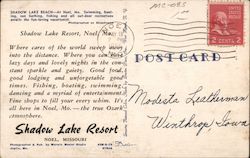 SHADOW LAKE BEACH—At Noel, Mo. Swimming, boating, sun bathing, fishing and all out-door recreations
MO-085
Shadow Lake Resort, Noel, Mo.
Where cares of the world seep away
into the distance. Where you can spend
lazy days and lovely nights in the con-
stant sparkle and gaiety. Good food,
good lodging and unforgettable good
times. Fishing, boating, swimming,
dancing and a myriad of entertainment.
Fine shops to fill your every whim. It's
all here in Noel, Mo.— the true Ozark
atmosphere.
Shadow Lake Resort
NOEL, MISSOURI
2 CENTS 2
POST CARD
Modesta Leatherman
Winthrop Iowa